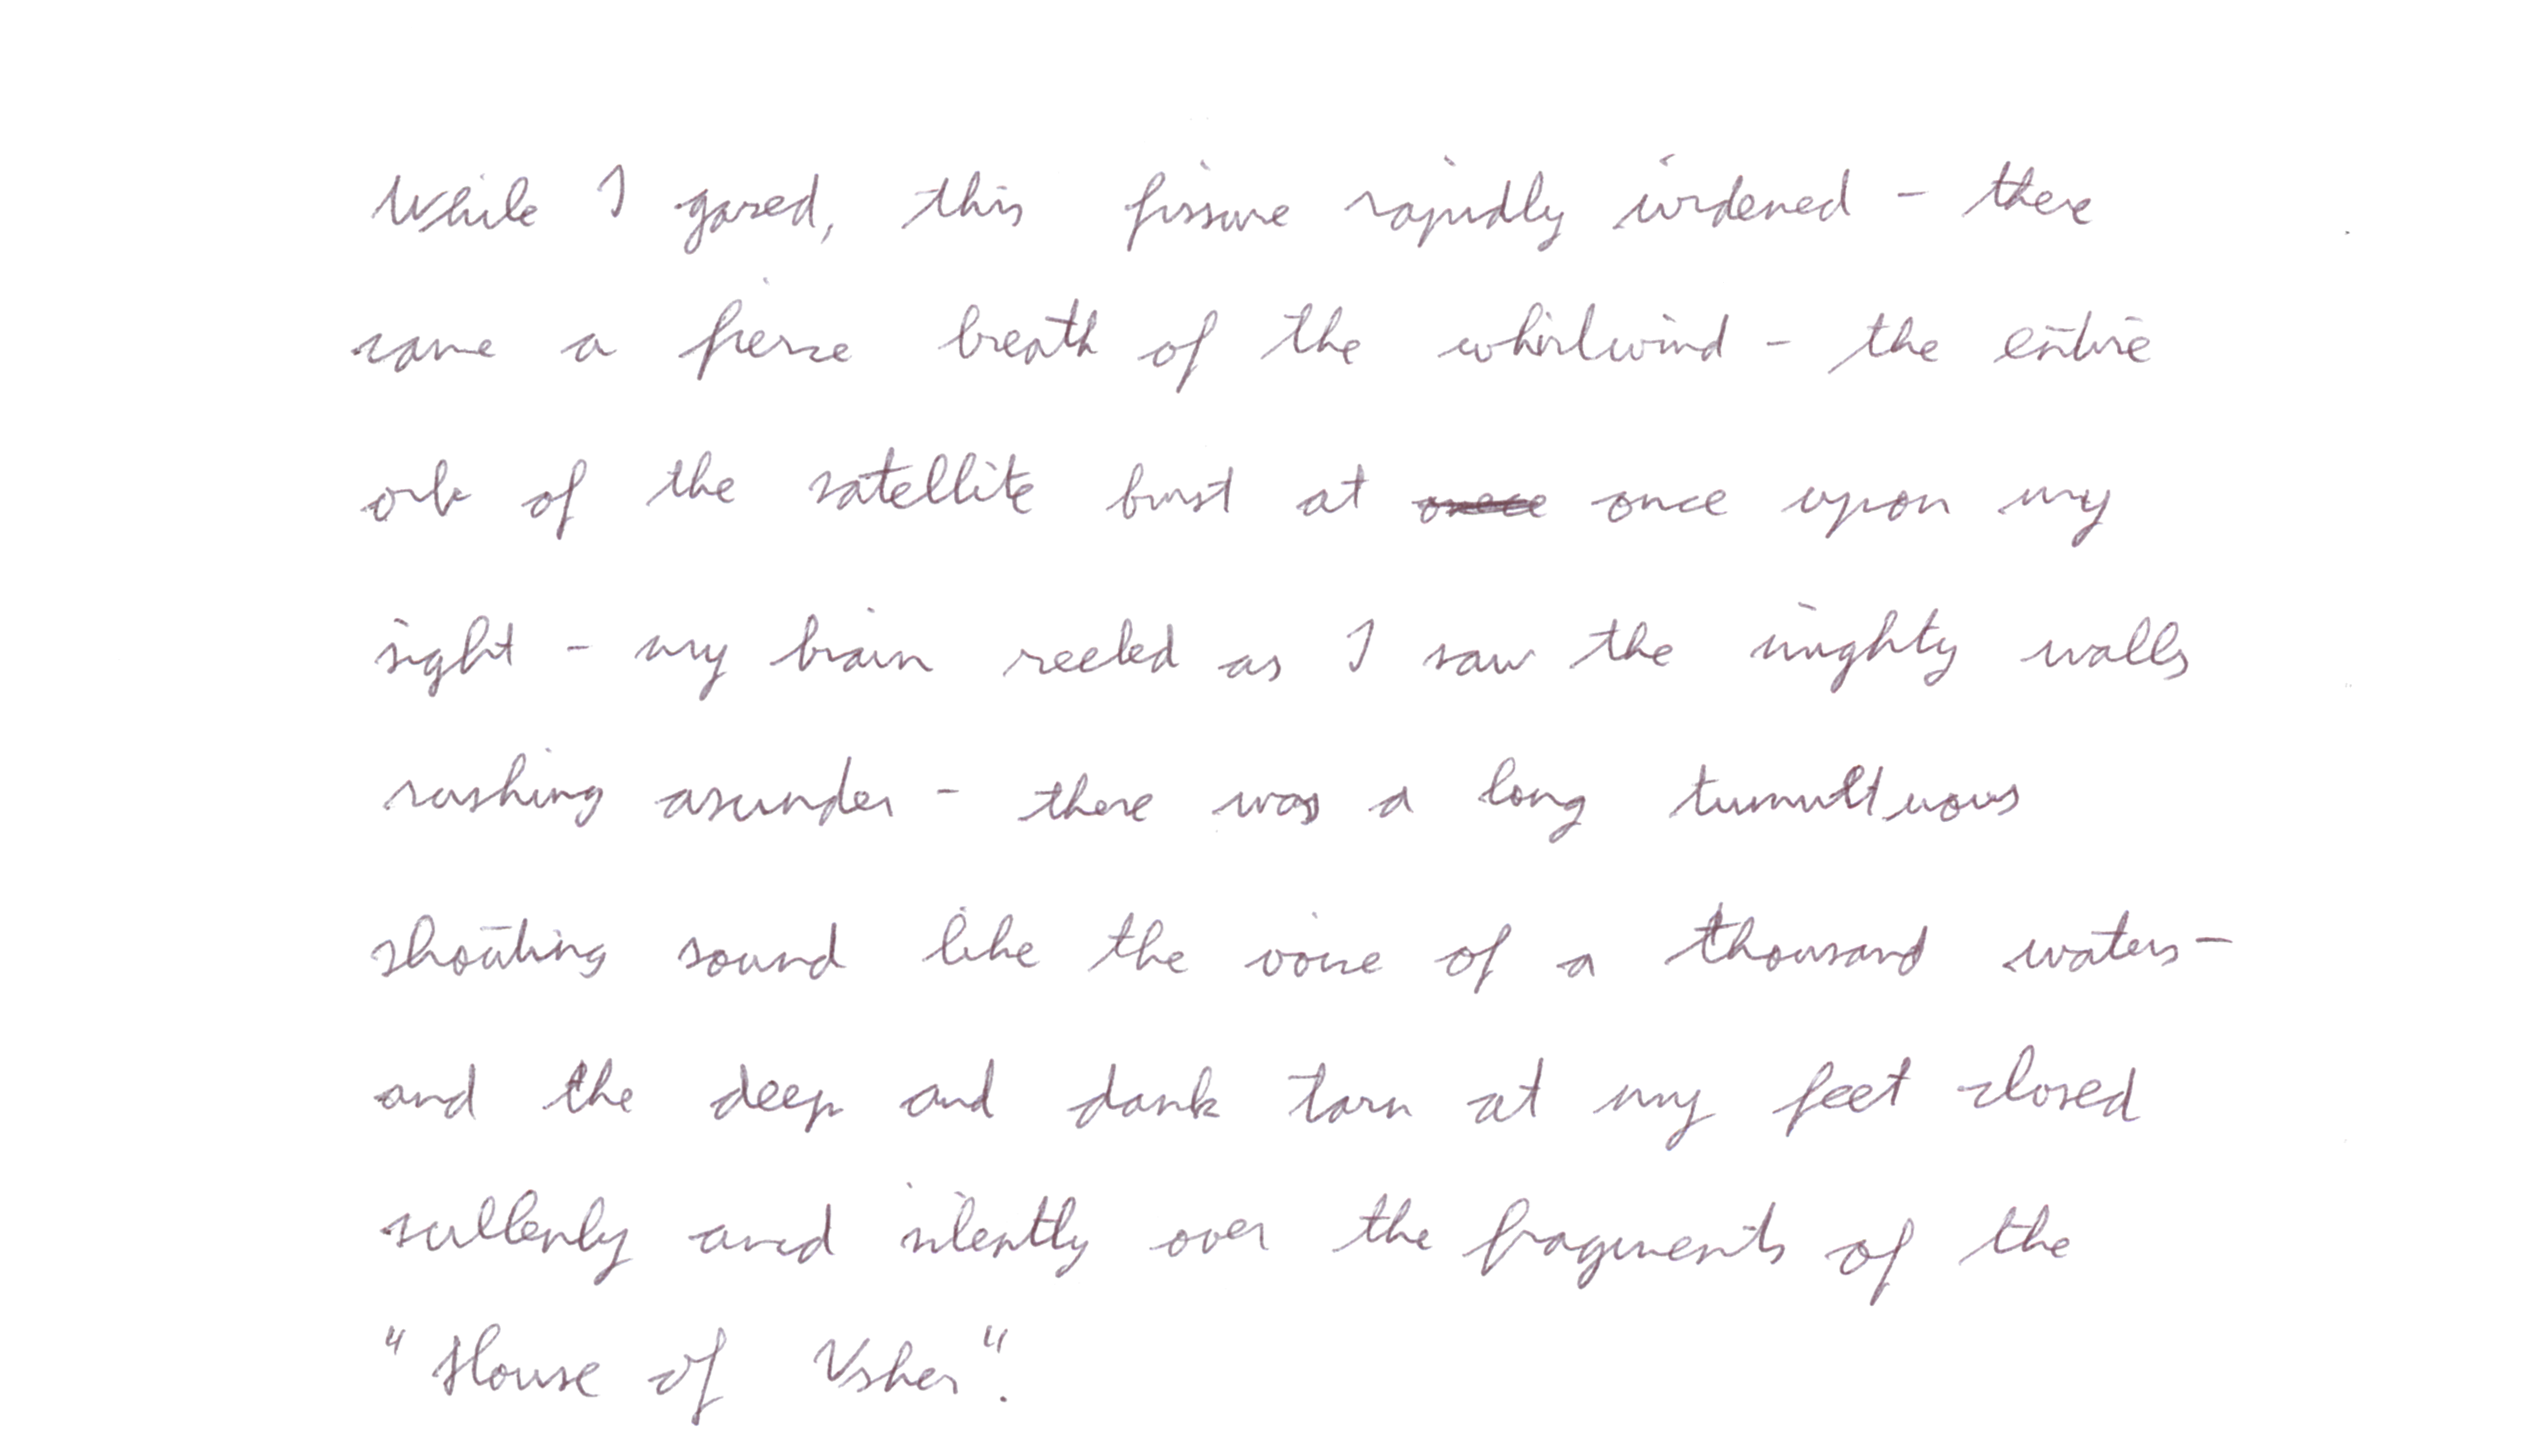 While I gazed, this fissure rapidly widened - there
came a fierce breath of the whirlwind - the entire
orb of the satellite burst at once once upon my
sight - my brain reeled as I saw the mighty walls
rushing asunder - there was a long tumultuous
shouting sound like the voice of a thousand waters -
and the deep and dank tarn at my feet closed
sullenly and silently over the fragments of the
"House of Usher".